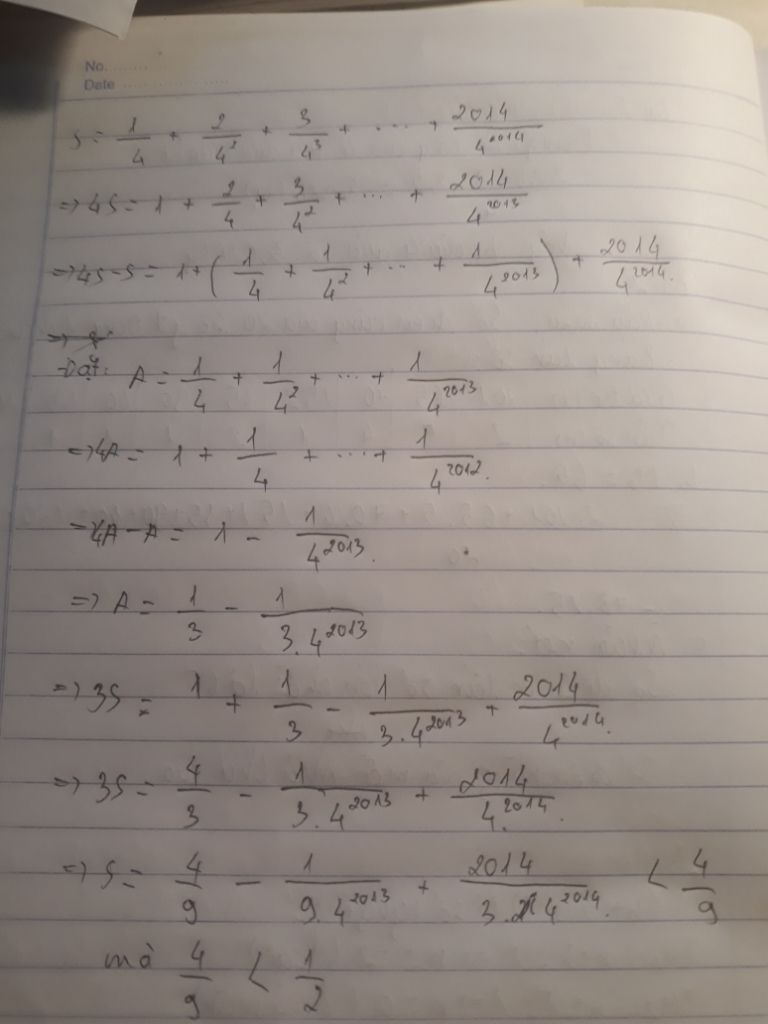 No. ........
Date ....................
S = 1/4 + 2/4² + 3/4³ + ... + 2014/4^2014
=> 4S = 1 + 2/4 + 3/4² + ... + 2014/4^2013
=> 4S - S = 1 + (1/4 + 1/4² + ... + 1/4^2013) + 2014/4^2014.
Đặt: A = 1/4 + 1/4² + ... + 1/4^2013
=> 4A = 1 + 1/4 + ... + 1/4^2012.
=> 4A - A = 1 - 1/4^2013.
=> A = 1/3 - 1/3.4^2013
=> 3S = 1 + 1/3 - 1/3.4^2013 + 2014/4^2014.
=> 3S = 4/3 - 1/3.4^2013 + 2014/4.^2014.
=> S = 4/9 - 1/9.4^2013 + 2014/3.4^2014. < 4/9
mà 4/9 < 1/2